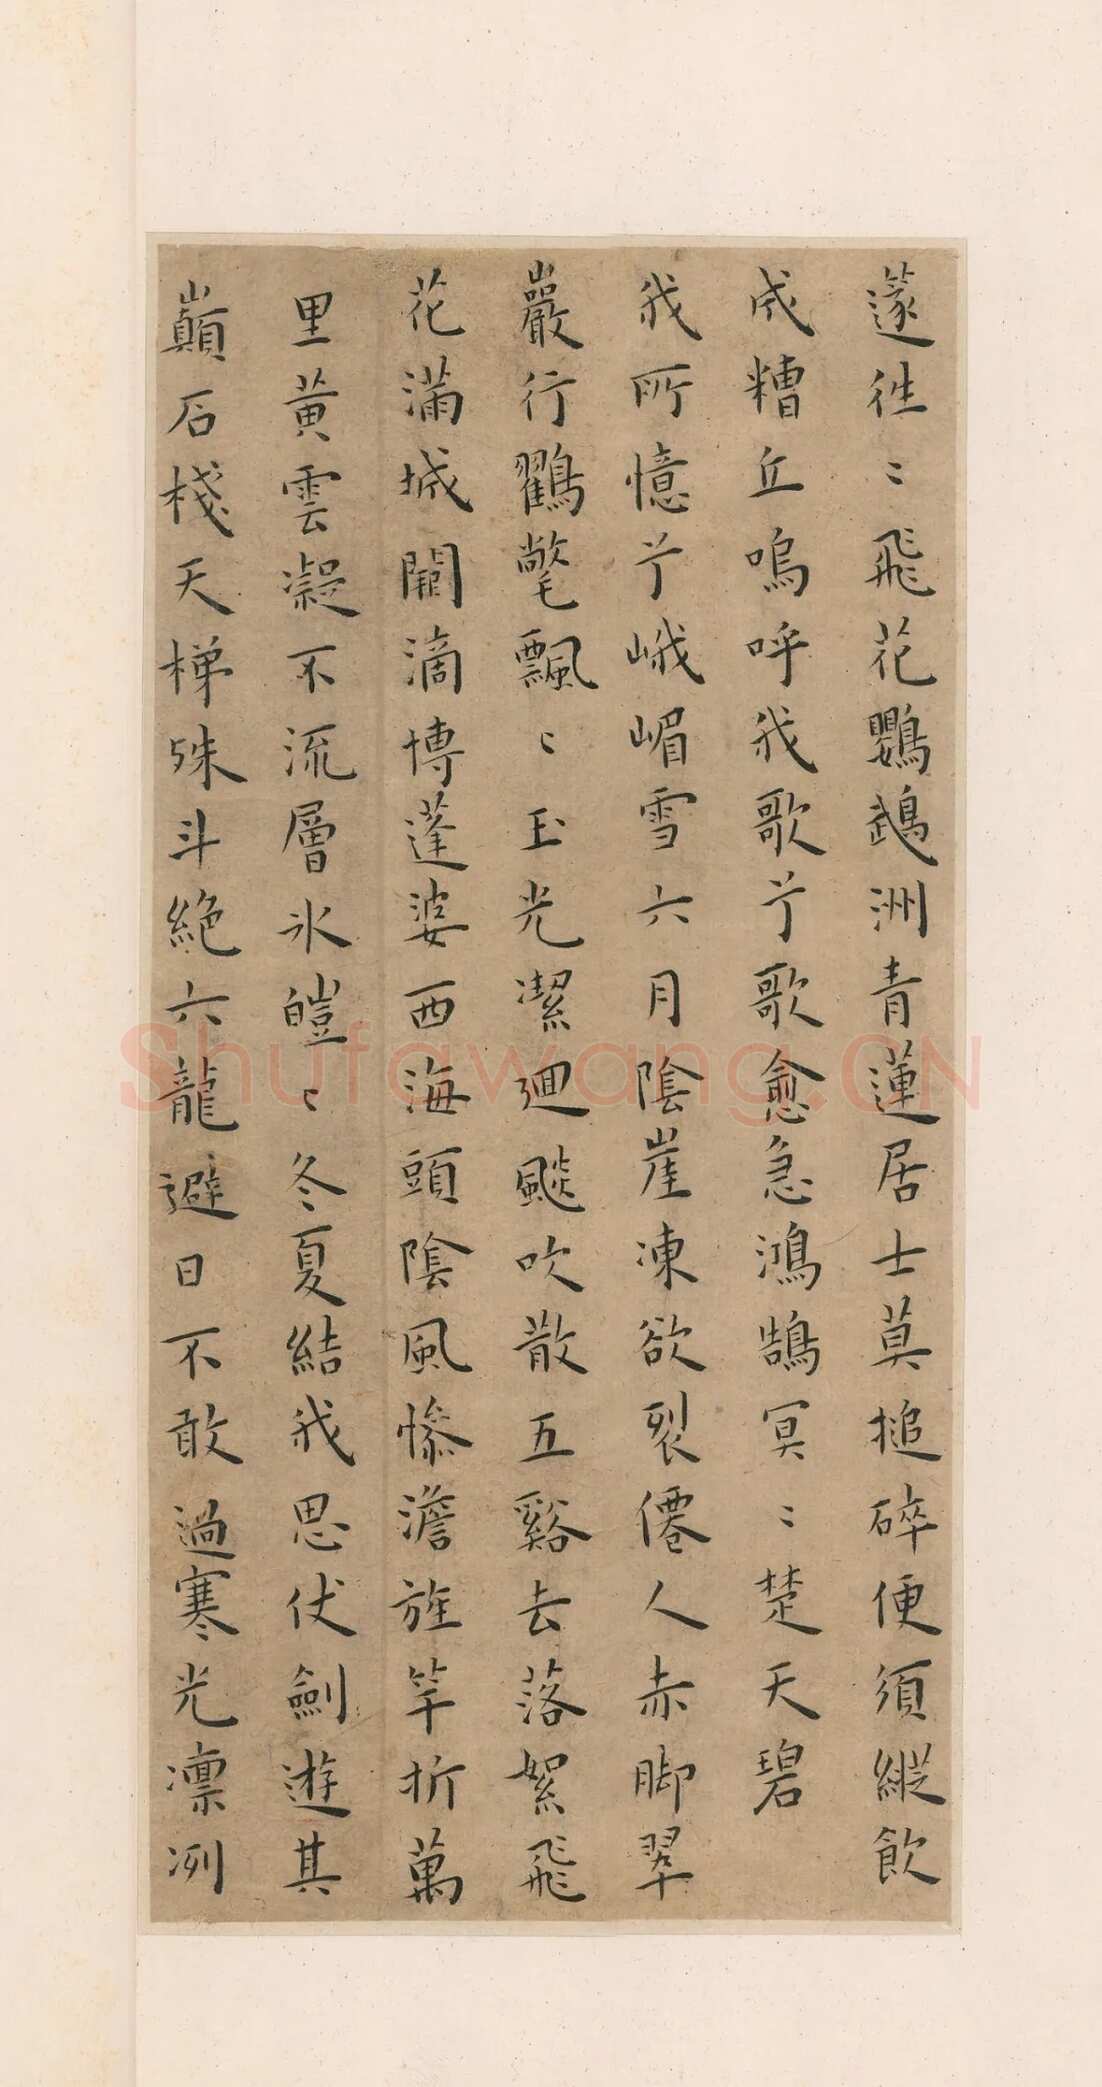 蓬往〻飛花鸚鵡洲青蓮居士莫搥碎便須縱飲
成糟丘嗚呼我歌兮歌愈急鴻鵠冥〻楚天碧
我所憶兮峨嵋雪六月陰崖凍欲裂僊人赤脚翠
巖行鸛氅飄〻玉光潔迴颷吹散五谿去落絮飛
花滿城闕滴博蓬婆西海頭陰風慘澹旌竿折萬
里黃雲凝不流層冰皚〻冬夏結我思伏劍遊其
巔石棧天梯殊斗絕六龍避日不敢過寒光凛冽
Shufawang.CN